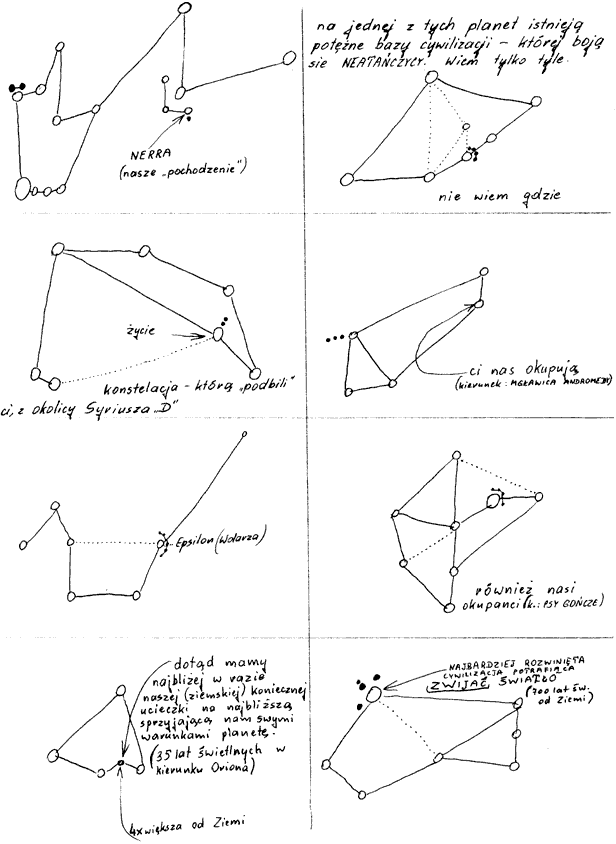 NERRA
(nasze „pochodzenie")
na jednej z tych planet istnieją
potężne bazy cywilizacji - której boją
sie NEATAŃCZYCY. Wiem tylko tyle.
nie wiem gdzie
życie
konstelacja - którą „podbili"
ci, z okolicy Syriusza „D"
ci nas okupują
(kierunek: MGŁAWICA ANDROMEDY)
Epsilon (Wolarza)
również nasi
okupanci (k.: PSY GOŃCZE)
dotąd mamy
najbliżej w razie
naszej (ziemskiej) koniecznej
ucieczki na najbliższą
sprzyjającą nam swymi
warunkami planetę.
(35 lat świetlnych w
kierunku Oriona)
4x większa od Ziemi
NAJBARDZIEJ ROZWINIĘTA
CYWILIZACJA POTRAFIĄCA
ZWIJAĆ ŚWIATŁO
(700 lat św.
od Ziemi)